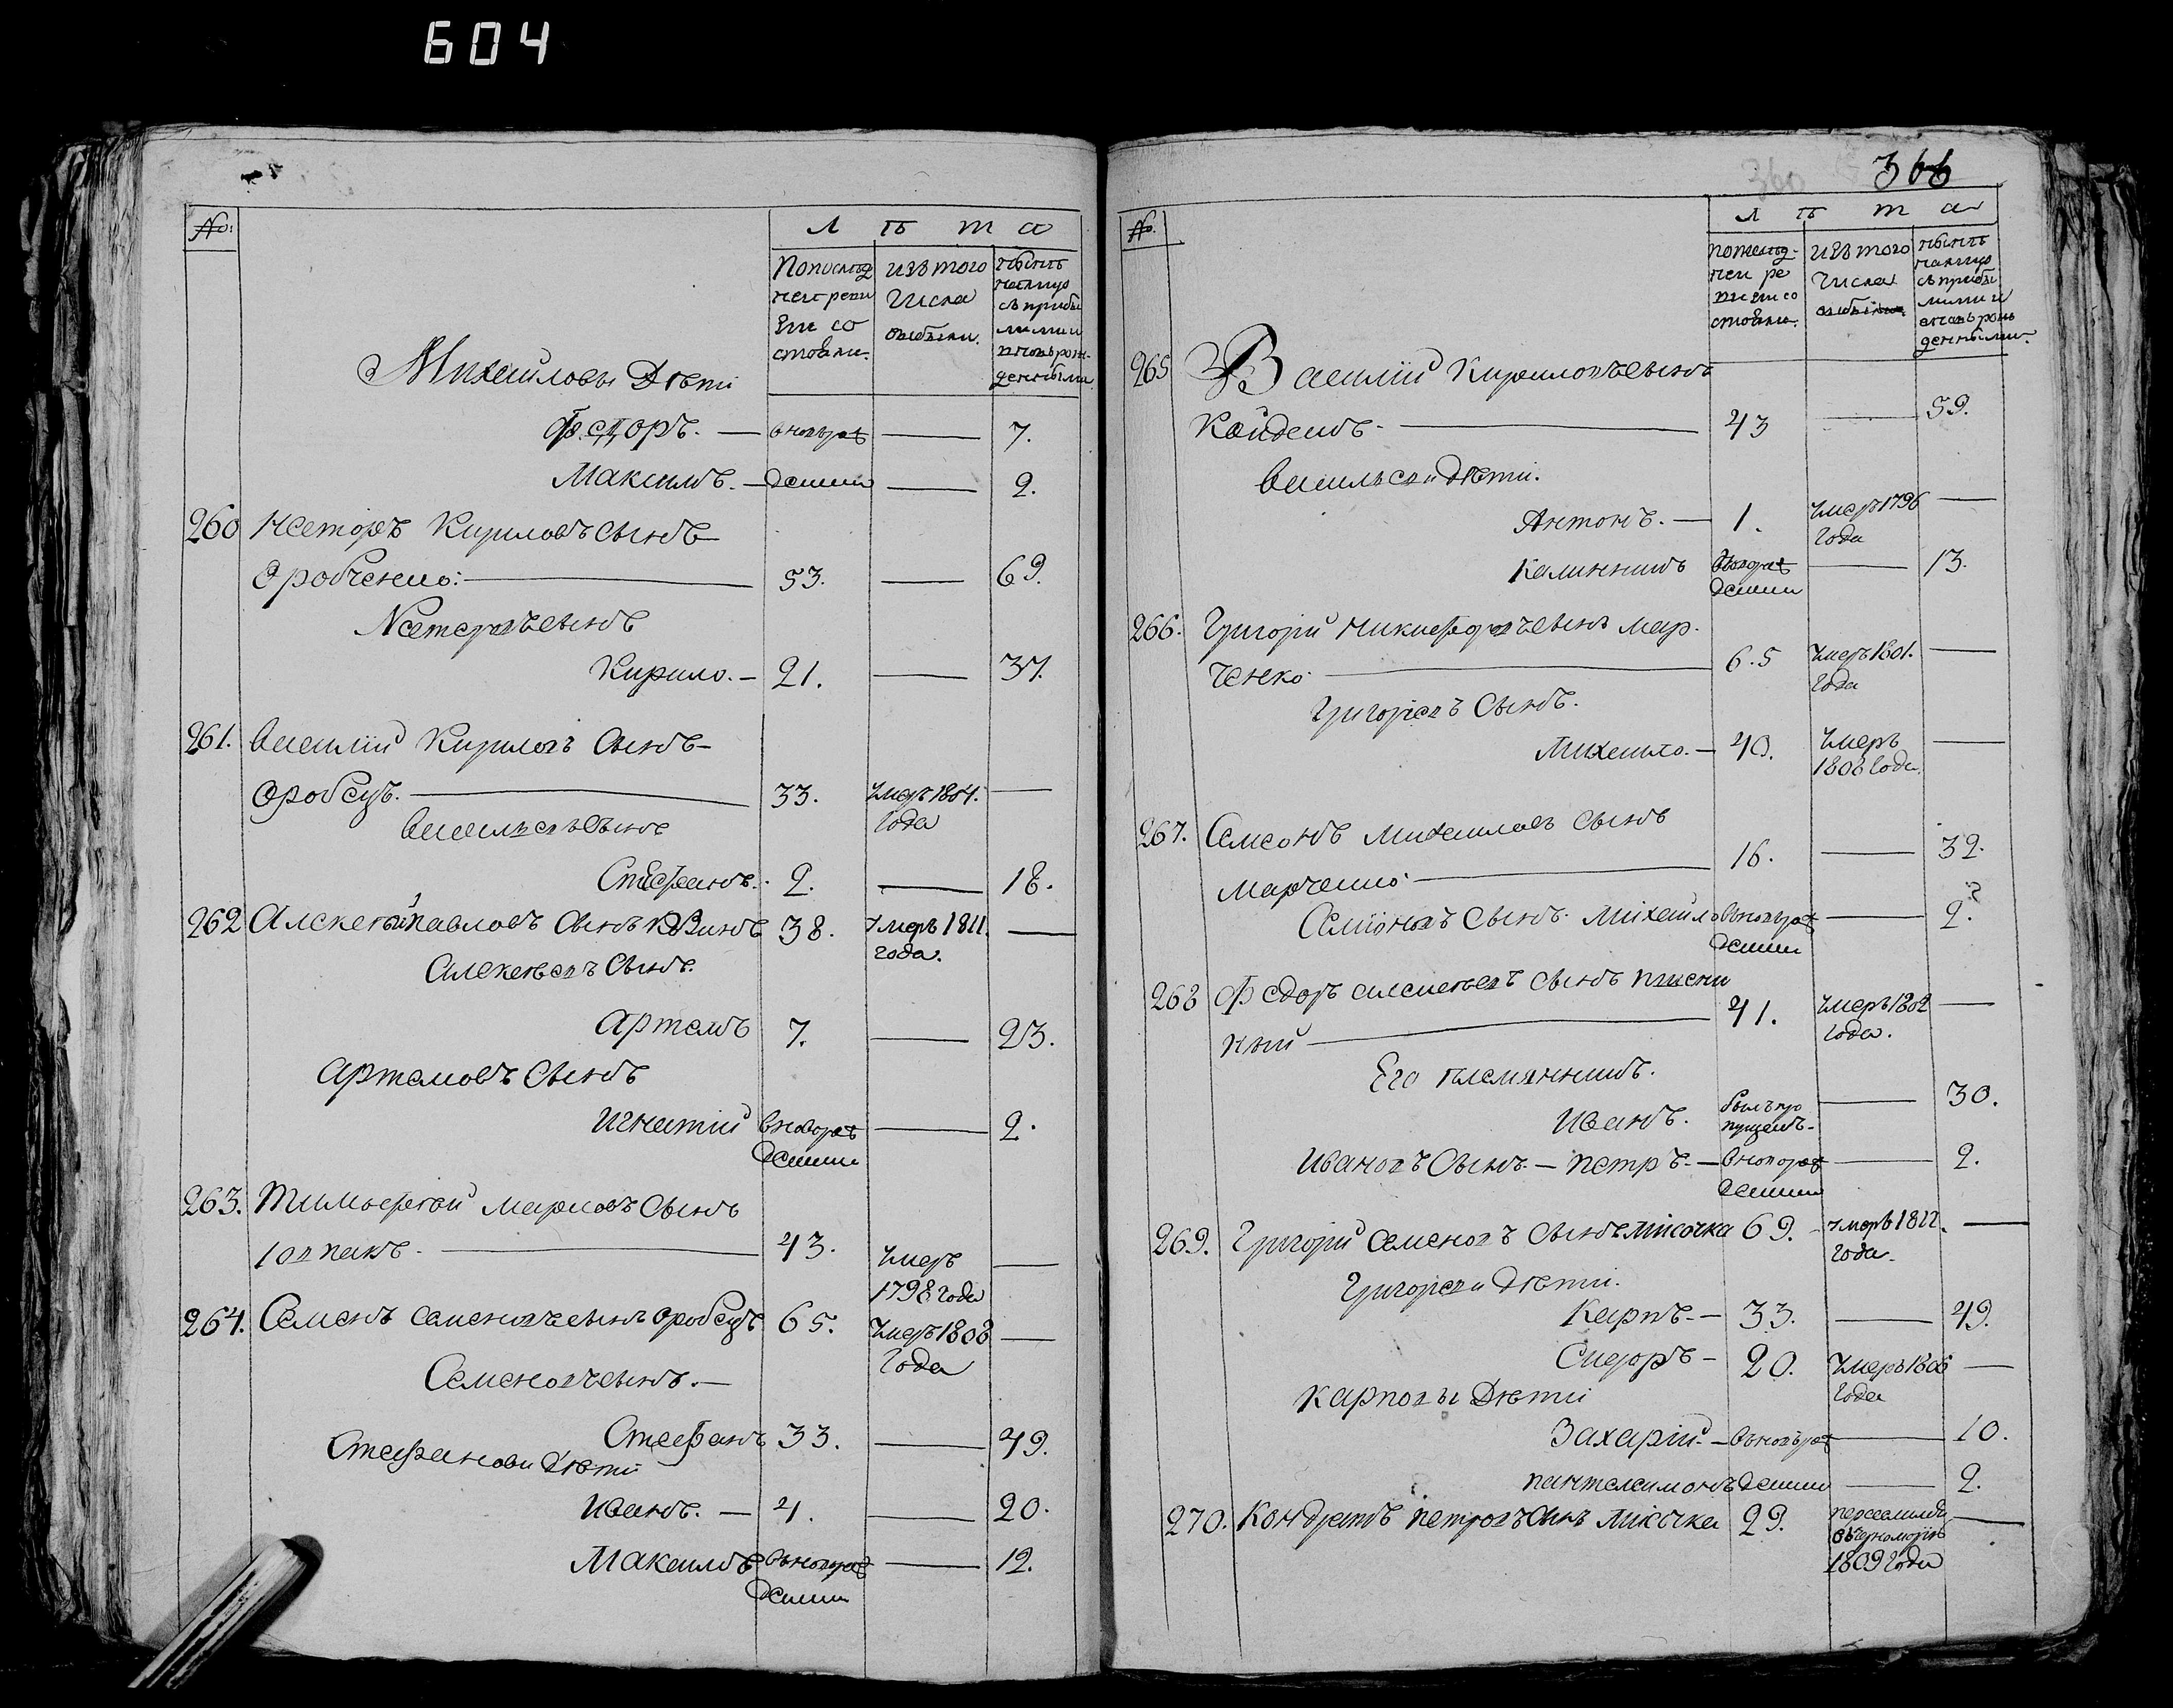 604
№:
Л ѣ т а
По послѣд
ней реви
зіи со
стояло.
изъ того
числа
выбыло.
нынѣ
на лицо
съ прибы
лыми и
вновь рож-
денными
Михайловы Дѣти
Федоръ. — вновърож — 7.
Максимъ. — денни — 2.
260 Несторъ Кириловъ сынъ
Оробченко: — 53. — 69.
Несторовъ сынъ
Кирило. — 21. — 37.
261. Василій Кириловъ Сынъ —
Оробецъ. — 33. умеръ 1804. —
года
Васильевъ сынъ
Стефанъ. 2. — 18.
262 Алексѣй павловъ Сынъ 38. умеръ 1811. —
года.
Алексѣевъ Сынъ.
Артемъ 7. — 23.
Артемовъ Сынъ
Игнатій вноворож — 2.
денни
263. Тимофѣй марковъ Сынъ
43. умеръ —
1798 года
264. Семенъ семеновъ сынъ оробецъ 65. умеръ 1808 —
года
Семеновъ сынъ. —
Стефанъ 33. — 49.
Стефанови Дѣти
Иванъ. — 4. — 20.
Максимъ вьноворож — 12.
денни
366
360
№.
Л ѣ т а
По послѣд-
ней ре
визіи со
стояло.
изъ того
числа
выбыло.
нынѣ
на лицо
съ прибы
лыми и
вновь рож
денными.
265 Василій Кириловъ сынъ
43 — 59.
Васильеви Дѣти.
Антонъ. — 1. умеръ 1796 —
года
Калинникъ вноворож — 13.
денни
266. Григорій никифоровъ сынъ мар-
ченко — 6.5 умеръ 1801. —
года
Григоріевъ Сынъ.
Михайло. — 40. умеръ —
1808 года
267. Самсонъ михайловъ сынъ
марченко — 16. — 32.
Самсоновъ Сынъ. Михайло вновърож — 2.
денни
268 Федоръ алексѣевъ сынъ
ный — 41. умеръ 1802 —
года.
Его племянникъ.
Иванъ. былъ про — 30.
пущенъ —
Ивановъ Сынъ. — петръ. — вноворож — 2.
денни
269. Григорій семеновъ сынъ місочка 69. — умеръ 1812. —
года.
Григореви Дѣти.
Карпъ. — 33. — 49.
Сидоръ — 20. умеръ 1806 —
года
Карповы Дѣти
Захарій. — вьновърож — 10.
пантелеимонъ денни — 2.
270. Кондратъ петровъ Сынъ місочка 29. переселилъ —
въ черноморію
1809 года